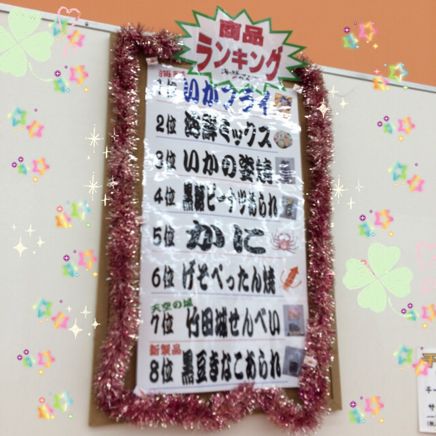 商品
ランキング
1位 いかフライ
2位 海鮮ミックス
3位 いかの姿焼
4位 黒胡ピーナツあられ
5位 かに
6位 げそぺったん焼
天空の城
7位 竹田城せんべい
新製品
8位 黒豆きなこあられ